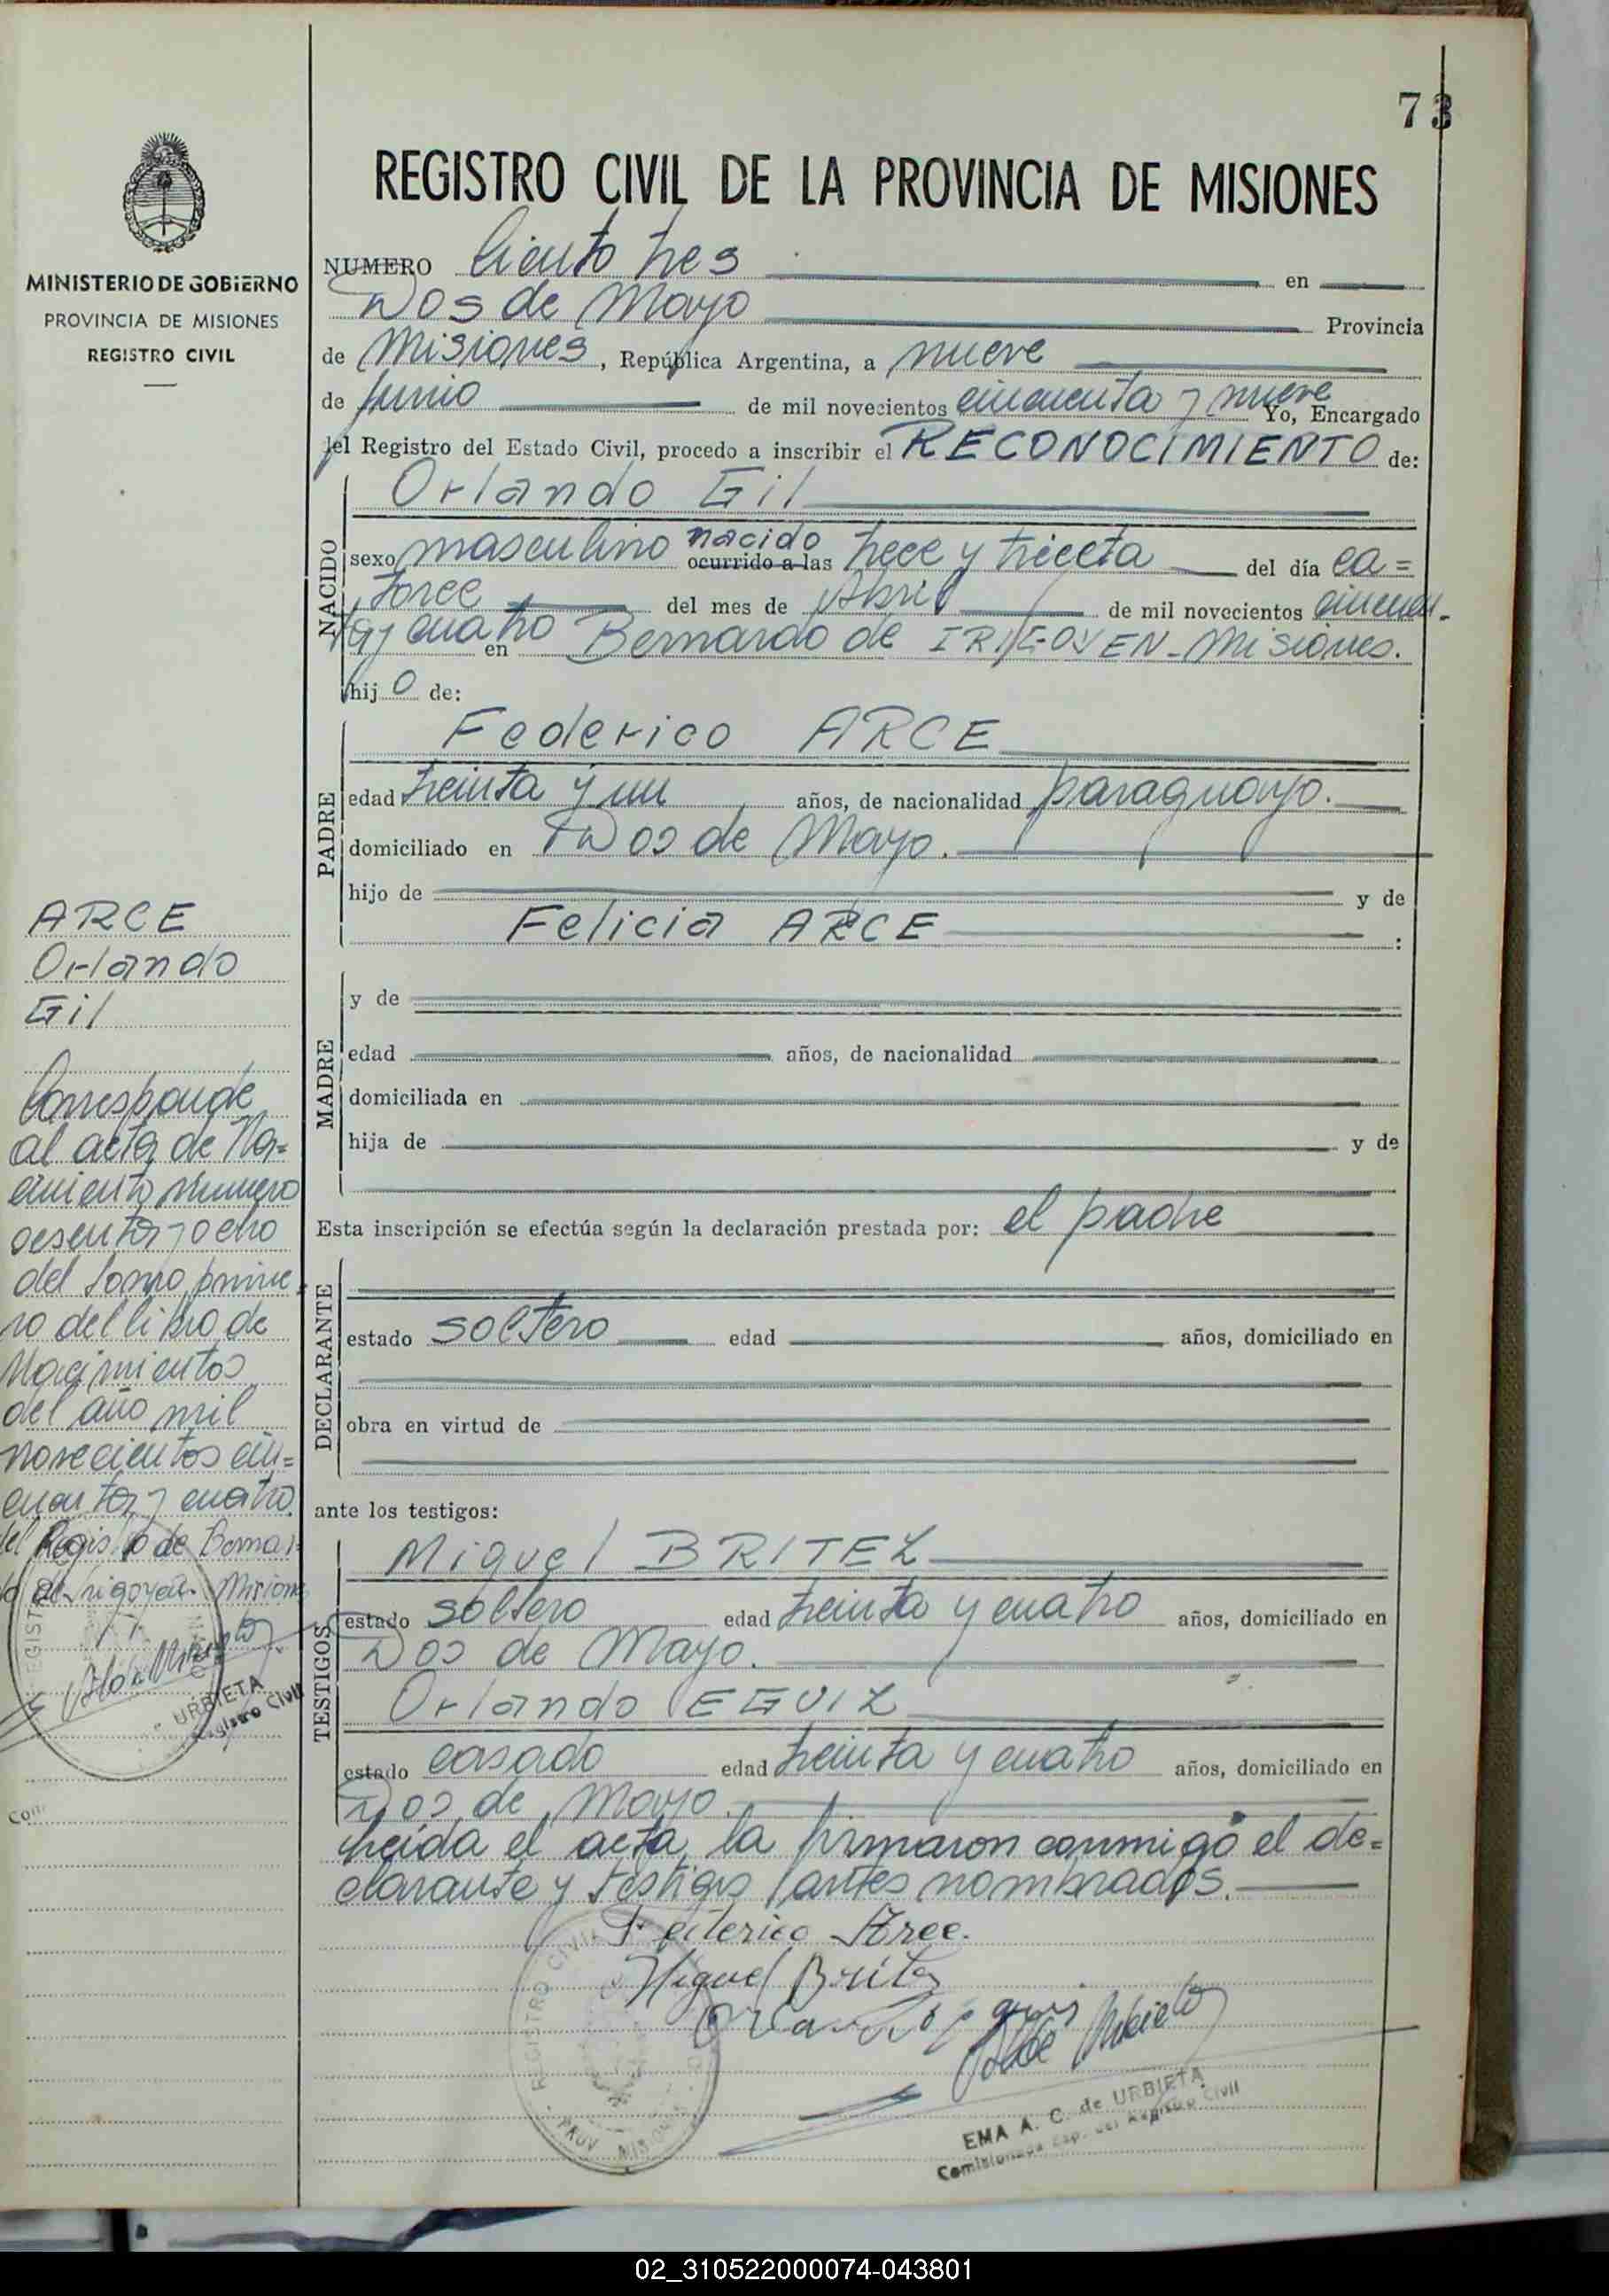 73
REGISTRO CIVIL DE LA PROVINCIA DE MISIONES
MINISTERIO DE GOBIERNO
PROVINCIA DE MISIONES
REGISTRO CIVIL
NUMERO Ciento tres en
Dos de Mayo Provincia
de Misiones, República Argentina, a nueve
de Junio de mil novecientos cincuenta y nueve Yo, Encargado
del Registro del Estado Civil, procedo a inscribir el RECONOCIMIENTO de:
NACIDO
Orlando Gil
sexo masculino nacido ocurrido a las trece y treinta del día ca=
torce del mes de Abril de mil novecientos cincuen-
ta y cuatro en Bernardo de IRIGOYEN - Misiones.
hijo de:
PADRE
Federico ARCE
edad treinta y un años, de nacionalidad paraguayo.
domiciliado en Dos de Mayo.
hijo de y de
Felicia ARCE :
MADRE
y de
edad años, de nacionalidad
domiciliada en
hija de y de
Esta inscripción se efectúa según la declaración prestada por: el padre
DECLARANTE
estado soltero edad años, domiciliado en
obra en virtud de
ante los testigos:
TESTIGOS
Miguel BRITEZ
estado soltero edad treinta y cuatro años, domiciliado en
Dos de Mayo.
Orlando EGUIZ
estado casado edad treinta y cuatro años, domiciliado en
Dos de Mayo.
Leída el acta, la firmaron conmigo el de=
clarante y testigos antes nombrados.
Federico Arce.
Miguel Britez
EMA A. C. de URBIETA
Comisionada Esp. del Registro Civil
REGISTRO CIVIL
PROV. MISIONES
ARCE
Orlando
Gil
Corresponde
al acta de Na=
cimiento número
sesenta y ocho
del Tomo prime-
ro del libro de
Nacimientos
del año mil
novecientos cin=
cuenta y cuatro.
del Registro de Bernar-
do de Irigoyen. Misiones
URBIETA
Registro Civil
02_310522000074-043801